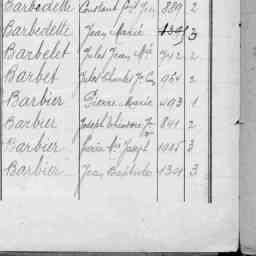 Barbedette Constant 889 2
Barbedette Jean Marie 1345 3
Barbelet Jules Jean Mie 742 2
Barbet Jules Charles 964 2
Barbier Pierre Marie 493 1
Barbier Joseph Théodore 841 2
Barbier Marie Joseph 1905 3
Barbier Jean Baptiste 1341 3